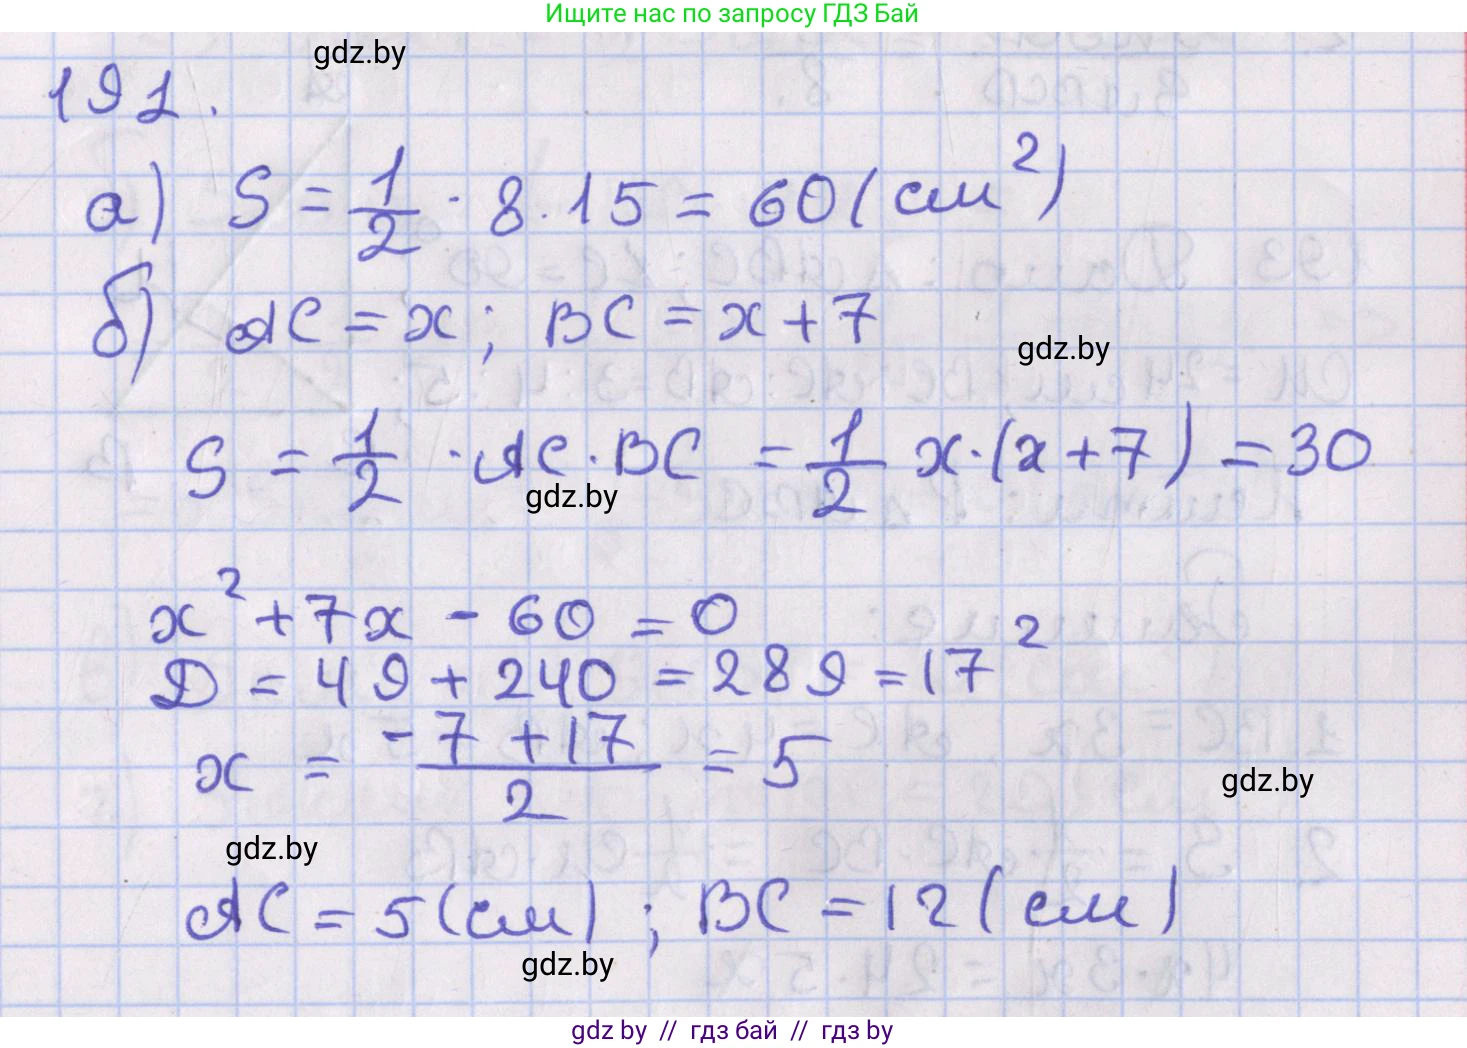 Ищите нас по запросу ГДЗ Бай
gdz.by
191.
а) S = 1/2 · 8 · 15 = 60 (см²)
б) AC = x; BC = x + 7
gdz.by
S = 1/2 · AC · BC = 1/2 x · (x + 7) = 30
gdz.by
x² + 7x - 60 = 0
D = 49 + 240 = 289 = 17²
x = (-7 + 17)/2 = 5
gdz.by
gdz.by
AC = 5 (см); BC = 12 (см)
gdz.by
gdz by // гдз бай // гдз by